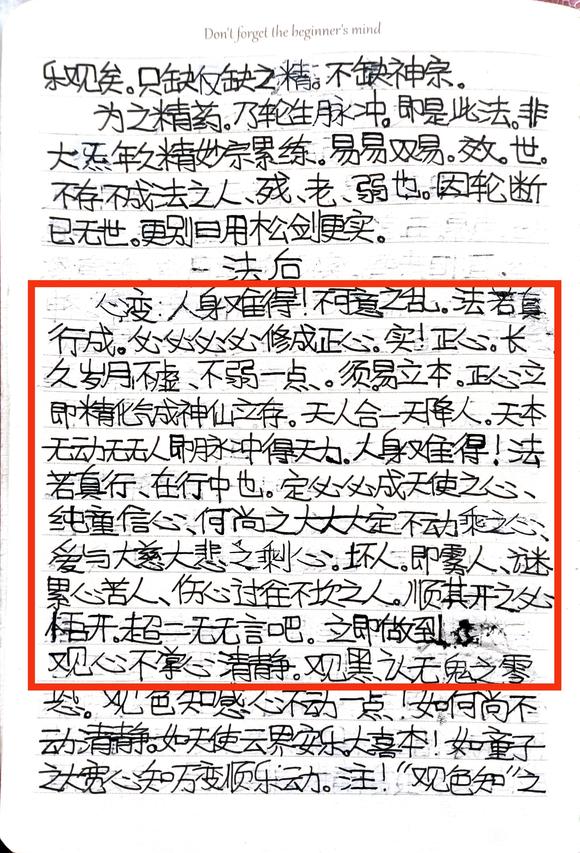 Don't forget the beginner's mind
乐观矣。只缺仅缺之精。不缺神宗。
为之精药。乃轮生月脉冲。即是此法。非
大炁年久精妙宗累练。易易双易。效。世。
不存不成法之人、残、老、弱也。因轮断
已无世。更别日用松剑更实。
一法后
心变:人身难得!不可意之乱。法若真
行成。必必必必修成正心。实!正心。长
久岁月不虚、不弱一点、。须易立本。正心立
即精化气成神仙立存。天人合一天降人。天本
无动无无人即脉冲得天力。人身难得!法
若真行、在行中也。定必必成天使之心、
纯童信心、何尚之大大大定不动乘之心、
爱与大慈大悲之刹心。坏人。即雾人、谜
累心苦人、伤心过往不坎之人。顺其开之必
悟开。超二无无言吧。立即做到
观心不掌心清静。观黑认无鬼之零
恐。观色知感心不动一点!如何尚不
动清静。如天使云界安乐大喜本!如童子
之大宽心知万变顺乐云动。注!“观色知”之